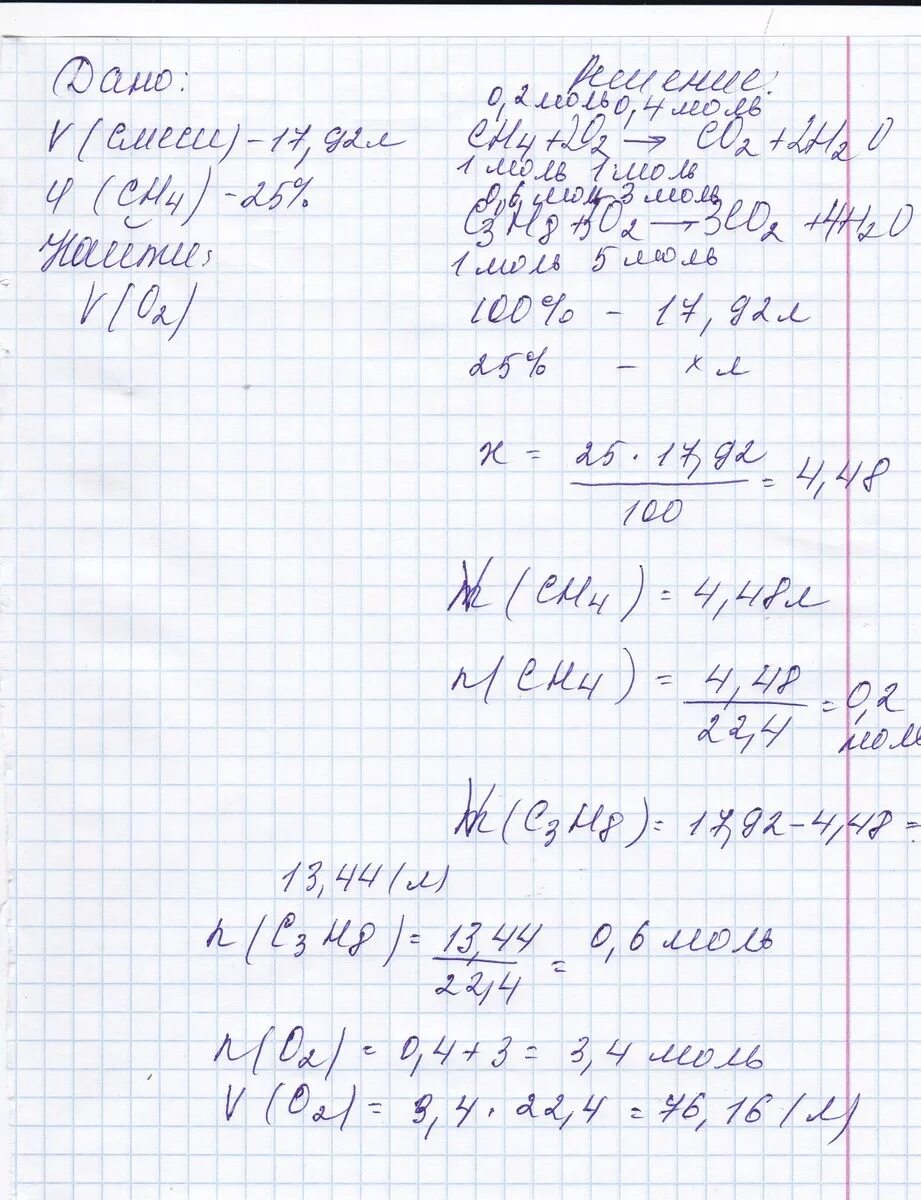 Дано:
V (смеси) - 17,92л
φ (CH4) - 25%
Найти:
V(O2)
Решение:
0,2 моль 0,4 моль
CH4 + 2O2 → CO2 + 2H2O
1 моль 1 моль
0,6 моль 3 моль
C3H8 + 5O2 → 3CO2 + 4H2O
1 моль 5 моль
100% - 17,92л
25% - x л
x = 25 · 17,92 / 100 = 4,48
V(CH4) = 4,48л
n(CH4) = 4,48 / 22,4 = 0,2 моль
V(C3H8) = 17,92 - 4,48 =
13,44 (л)
n(C3H8) = 13,44 / 22,4 = 0,6 моль
n(O2) = 0,4 + 3 = 3,4 моль
V(O2) = 3,4 · 22,4 = 76,16 (л)